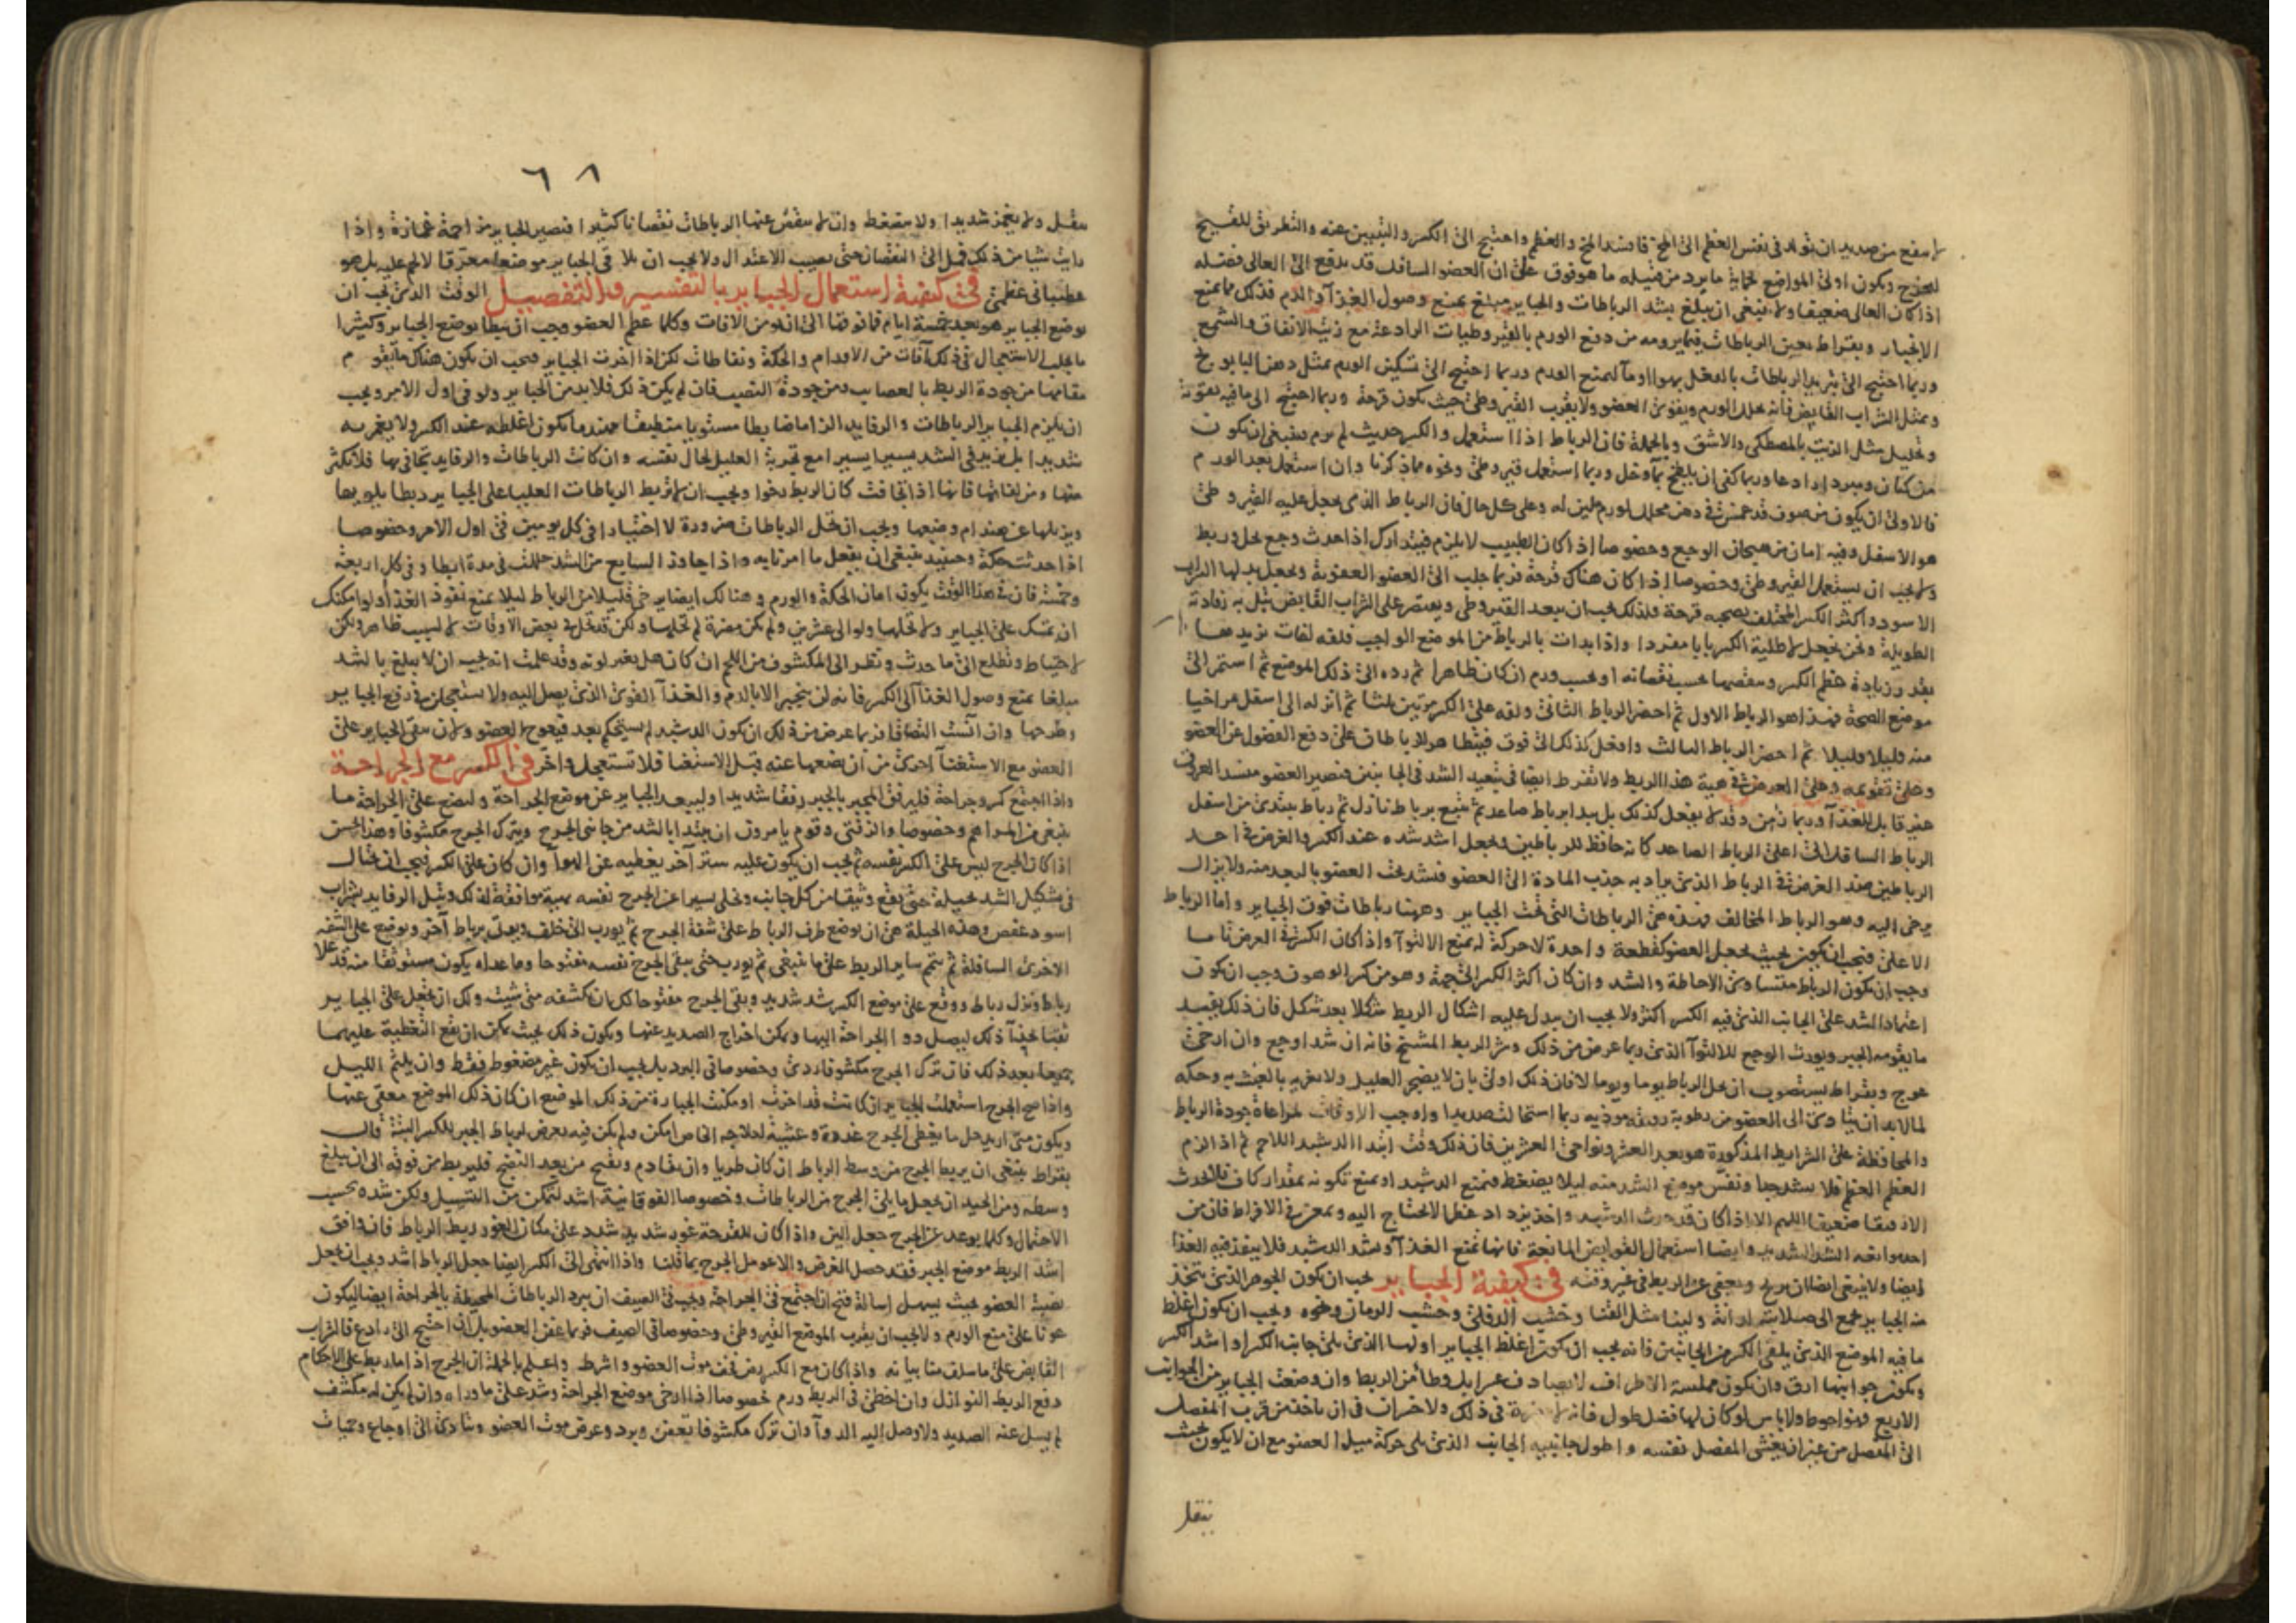 لا يمنع من صديد ان يتولد فى نفس العظم الى المخ فافسد المخ والعظم واحتيج الى الكسر والتبيين عنه والتطريق للقيح
ليخرج ويكون اولى المواضع بحماية ما يرد من قبله ما هو فوق على ان العضو السافل قد يدفع الى العالى فضله
اذا كان العالى ضعيفا ولا ينبغى ان يبلغ بشد الرباطات والجباير مبلغ يمنع وصول الغذآ والدم فذلك مما يمنع
الانجبار وبقراط يعين الرباطات فيما يرومه من دفع الورم بالقيروطيات الرادعة مع زيت الانفاق والشمع
وربما احتيج الى تبريد الرباطات بالفعل بهوا او مآ ليمنع الورم وربما احتيج الى تسكين الورم بمثل دهن البابونج
وبمثل الشراب القابض فانه يحلل الورم ويقوى العضو ولا يقرب القيروطى حيث يكون قرحة وربما احتيج الى ما فيه تقوية
وتحليل مثل الزيت بالمصطكى والاشق وبالجملة فان الرباط اذا استعمل والكسر حديث لم يرم فينبغى ان يكون
من كتان ومبردا رادعا وربما كفى ان يلطخ بمآ وخل وربما استعمل قيروطى ونحوه مما ذكرنا وان استعمل بعد الورم
فالاولى ان يكون من صوف قد غمس فى دهن محلل لورم ملين له وعلى كل حال فان الرباط الذى يجعل عليه القيروطى
هو الاسفل وفيه امان من هيجان الوجع وخصوصا اذا كان الطبيب لا يلزم فيتدارك اذا حدث وجع بحل وربط
ولا يجب ان يستعمل القيروطى وخصوصا اذا كان هناك قرحة فربما جلب الى العضو العفونة ويجعل بدلها الشراب
الاسود واكثر الكسر المختلف يصحبه قرحة فلذلك يجب ان يبعد القيروطى ويقتصر على الشراب القابض تبل به رفادته
الطويلة ونحن نجعل لاطلية الكسر بابا مفردا واذا بدات بالرباط من الموضع الواجب فلفه لفات تزيد معها
بقدر زيادة عظم الكسر وينقصها بحسب نقصانه او بحسب ورم ان كان ظاهرا ثم رده الى ذلك الموضع ثم استمر الى
موضع الصحة فهذا هو الرباط الاول ثم احضر الرباط الثانى ولفه على الكسر مرتين او ثلثا ثم انزله الى اسفل مراخيا
منه قليلا قليلا ثم احضر الرباط الثالث وافعل كذلك الى فوق فيتظاهر الرباطات على دفع الفضول عن العضو
وعلى تقويمه وعلى الغرض فى هية هذا الربط ولا تفرط ايضا فى تبعيد الشد فى الجانبين فيصير العضو منسد العروق
غير قابل للغذآ وربما زمن وقد لا يفعل كذلك بل يبدا برباط صاعد ثم يتبع برباط نازل ثم رباط يبتدى من اسفل
الرباط السافل الى اعلى الرباط الصاعد كانه حافظ للرباطين وتجعل اشد شده عند الكسر والغرض فى احد
الرباطين ضد الغرض فى الرباط الذى يراد به جذب المادة الى العضو فيشد تحت العضو بالبعد منه ولا يزال
يرخى اليه وهو الرباط المخالف فهذه هى الرباطات التى تحت الجباير وههنا رباطات فوق الجباير واما الرباط
الاعلى فيجب ان يكون بحيث يجعل العضو كقطعة واحدة لا حركة له يمنع الالتوآ واذا كان الكسر فى العرض تاما
وجب ان يكون الرباط متساوى الاحاطة والشد وان كان اكثر الكسر الى جهة وهو من كسر الوهون وجب ان يكون
اعتماد الشد على الجانب الذى فيه الكسر اكثر ولا يجب ان يبدل عليه اشكال الربط شكلا بعد شكل فان ذلك يفسد
ما يقومه الجبر ويورث الوجع للالتوآ الذى ربما عرض من ذلك وشر الربط المشنج فانه ان شد اوجع وان ارخى
عوج وبقراط يستصوب ان يحل الرباط يوما ويوما لا فان ذلك اولى بان لا يضجر العليل ولا يغريه بالعبث به وحكه
لما لابد ان يتادى الى العضو من رطوبة رقيقة موذيه ربما استحالت صديدا واوجب الاوقات لمراعاة جودة الرباط
والمحافظة على الشرايط المذكورة هو بعد العشر ونواحى العشرين فان ذلك وقت ابتدا الدشبد اللاحم ثم اذا لزم
العظم العظم فلا يشد جدا ونفس موضع الشد منه ليلا يضغط فيمنع الدشبد او يمنع تكونه بمقدار كاف فلا يحدث
الا رقيقا ضعيفا اللهم الا اذا كان قد حدث الدشبد واخذ يزداد عظما لا يحتاج اليه ويمعن فى الافراط فان من
احد موانعه الشد الشديد وايضا استعمال القوابض المانعة فانها تمنع الغذآ وتشد الدشبد فلا ينفذ فيه الغذا
ايضا ولا ينبغى ايضا ان يريح ويعفى عن الربط فى غير وقته فى كيفية الجباير يجب ان يكون الجوهر الذى يتخذ
منه الجباير يجمع الى صلابته لدانة ولينا مثل القنا وخشب الدفلى وخشب الرمان ونحوه ويجب ان يكون اغلظ
ما فيه الموضع الذى يلقى الكسر من الجانبين فانه يجب ان يكون اغلظ الجباير اولها الذى يلى جانب الكسر او اشد الكسر
ويكون جوانبها ارق وان يكون مملسة الاطراف لا يصادف غرابل وطأ من الربط وان وضعت الجباير من الجوانب
الاربع فهو احوط ولا باس لو كان لها فضل طول فانه لا ضرة فى ذلك ولا خسران فى ان ياخذ من قرب المفصل
الى المفصل من غير ان يغشى المفصل نفسه واطول جانبيه الجانب الذى يلى حركة ميل العضو مع ان لا يكون بحيث
يثقل
٦٨
يثقل ولا يغمز شديدا ولا يضغط وان لا ينقص عنها الرباطات نقصانا كثيرا فيصير الجباير مزاحمة غمازة واذا
رايت شيا من ذلك فمل الى النقصان حتى يصيب الاعتدال ولا يجب ان يلاقى الجباير موضعا معرقا لا لحم عليه بل هو
عظمى فى كيفية استعمال الجباير بالتفسير والتفصيل الوقت الذى يجب ان
يوضع الجباير هو بعد خمسة ايام فما فوقها الى ان يومن الافات وكلما عظم العضو وجب ان يبطا بوضع الجباير وكثيرا
ما يجلب الاستعجال فى ذلك آفات من الاورام والحكة ونفاطات لكن اذا اخرت الجباير فيجب ان يكون هناك ما يقوم
مقامها من جودة الربط بالعصايب ومن جودة النصبة فان لم يكن ذلك فلابد من الجباير ولو فى اول الامر ويجب
ان يلزم الجباير الرباطات والرفايد الزاما ضابطا مستويا منطبقا مهندما يكون اغلظه عند الكسر ولا يغمز به
شديدا بل يزيد فى الشد يسيرا يسيرا مع تجربة العليل لحال نفسه وان كانت الرباطات والرفايد تجافى بها فلا تكثر
منها ومن لفاتها فانها اذا تجافت كان الربط رخوا ويجب ان لا تربط الرباطات العليا على الجباير ربطا يلويها
ويزيلها عن هندام وضعها ويجب ان تحل الرباطات ضرورة لا اختيارا فى كل يومين فى اول الامر وخصوصا
اذا حدثت حكة وحينيذ ينبغى ان يفعل ما امرنا به واذا جاوز السابع من الشد حللت فى مدة ابطا وفى كل اربعة
وخمسة فان فى هذا الوقت يكون امان الحكة والورم وهنالك ايضا يرخى قليلا من الرباط ليلا يمنع نفوذ الغذآ ولو امكنك
ان تمسك على الجباير ولا تحلها ولو الى عشرين ولم يكن مضرة لم تحلها ولكن قد تحل فى بعض الاوقات لا لسبب ظاهر ولكن
لاحتياط وتطلع الى ما حدث وتنظر الى المكشوف من اللحم ان كان هل يغير لونه وقد علمت انه يجب ان لا يبلغ بالشد
مبلغا يمنع وصول الغذآ الى الكسر فانه لن ينجبر الا بالدم والغذآ القوى الذى يصل اليه ولا تستعجلن فى رفع الجباير
وطرحها وان آنست التصاقا فربما عرض من ذلك ان يكون الدشبد لم يستحكم بعد فيعوج العضو ولان تبقى الجباير على
العضو مع الاستغنآ احرى من ان يضعها عنه قبل الاستغنا فلا تستعجل واخر فى الكسر مع الجراحة
واذا اجتمع كسر وجراحة فليرفق المجبر بالجبر رفقا شديدا وليبعد الجباير عن موضع الجراحة وليضع على الجراحة ما
ينبغى من المراهم وخصوصا والزفتى وقوم يامرون ان يبتدا بالشد من جانبى الجرح ويترك الجرح مكشوفا وهذا يحسن
اذا كان الجرح ليس على الكسر نفسه ثم يجب ان يكون عليه ستر آخر يغطيه عن الهوآ وان كان على الكسر فيجب ان يحتال
فى تشكيل الشد بحيلة حتى يقع وثيقا من كل جانب ويخلى يسيرا عن الجرح نفسه بهية موافقة لذلك وتبل الرفايد بشراب
اسود عفص وهذه الحيلة هى ان يوضع طرف الرباط على شفة الجرح ثم يورب الى خلف ويعدل برباط آخر ويوضع على الشفة
الاخرى السافلة ثم يتمم ساير الربط على ما ينبغى ثم يورب حتى يبقى الجرح نفسه مفتوحا وما عداه يكون مستوثقا منه قد علا
رباط ونزل رباط ووقع على موضع الكسر شد شديد وبقى الجرح مفتوحا لك ان تكشفه متى شيت ولك ان تجعل على الجباير
نقبا بحذآ ذلك ليصل دوا الجراحة اليها ويمكن اخراج الصديد عنها ويكون ذلك بحيث يمكن ان يقع التغطية عليهما
جميعا بعد ذلك فان ترك الجرح مكشوفا ردى وخصوصا فى البرد بل يجب ان يكون غير مضغوط فقط وان يلتم الليل
واذا صح الجرح استعملت الجباير ان كانت قد اخرت او مكنت الجبارة من ذلك الموضع ان كان ذلك الموضع معفى عنها
ويكون متى اريد حل ما يغطى الجرح غدوة وعشية لعلاجه الخاص امكن ولم يكن فيه تعرض لرباط الجبر للكسر البتة قال
بقراط ينبغى ان يربط الجرح من وسط الرباط ان كان طريا وان تقادم وتقيح من بعد النضج فليربط من فوقه الى ان يبلغ
وسطه ومن الجيد ان يجعل ما يلى الجرح من الرباطات وخصوصا الفوقانية اشد ليتمكن من التسييل وليكن شده بحسب
الاحتمال وكلما بوعد عن الجرح جعل الين واذا كان للقرحة غور شديد شدد على مكان الغور ربط الرباط فان وافق
اشد الربط موضع الجبر فقد حصل الغرض والا عومل الجرح بما قلنا واذا انتهى الى الكسر ايضا جعل الرباط اشد ويجب ان يجعل
نصبة العضو بحيث يسهل اسالة قيح ان اجتمع فى الجراحة ويجب فى الصيف ان يبرد الرباطات المحيطة بالجراحة ايضا ليكون
عونا على منع الورم ولا يجب ان يقرب الموضع القيروطى وخصوصا فى الصيف فربما عفن العضو بل ان احتيج الى رادع فالشراب
القابض على ما سلف منا بيانه واذا كان مع الكسر رض فخيف موت العضو واشرط واعلم بالجملة ان الجرح اذا ما ربط على الاحكام
دفع الربط النوازل وان اخطى فى الربط ورم خصوصا اذا ارخى موضع الجراحة وشد على ماوراه وان لم يكن له مكشف
لم يسل عنه الصديد ولا وصل اليه الدوآ وان ترك مكشوفا تعفن وبرد وعرض موت العضو وتادى الى اوجاع وحميات